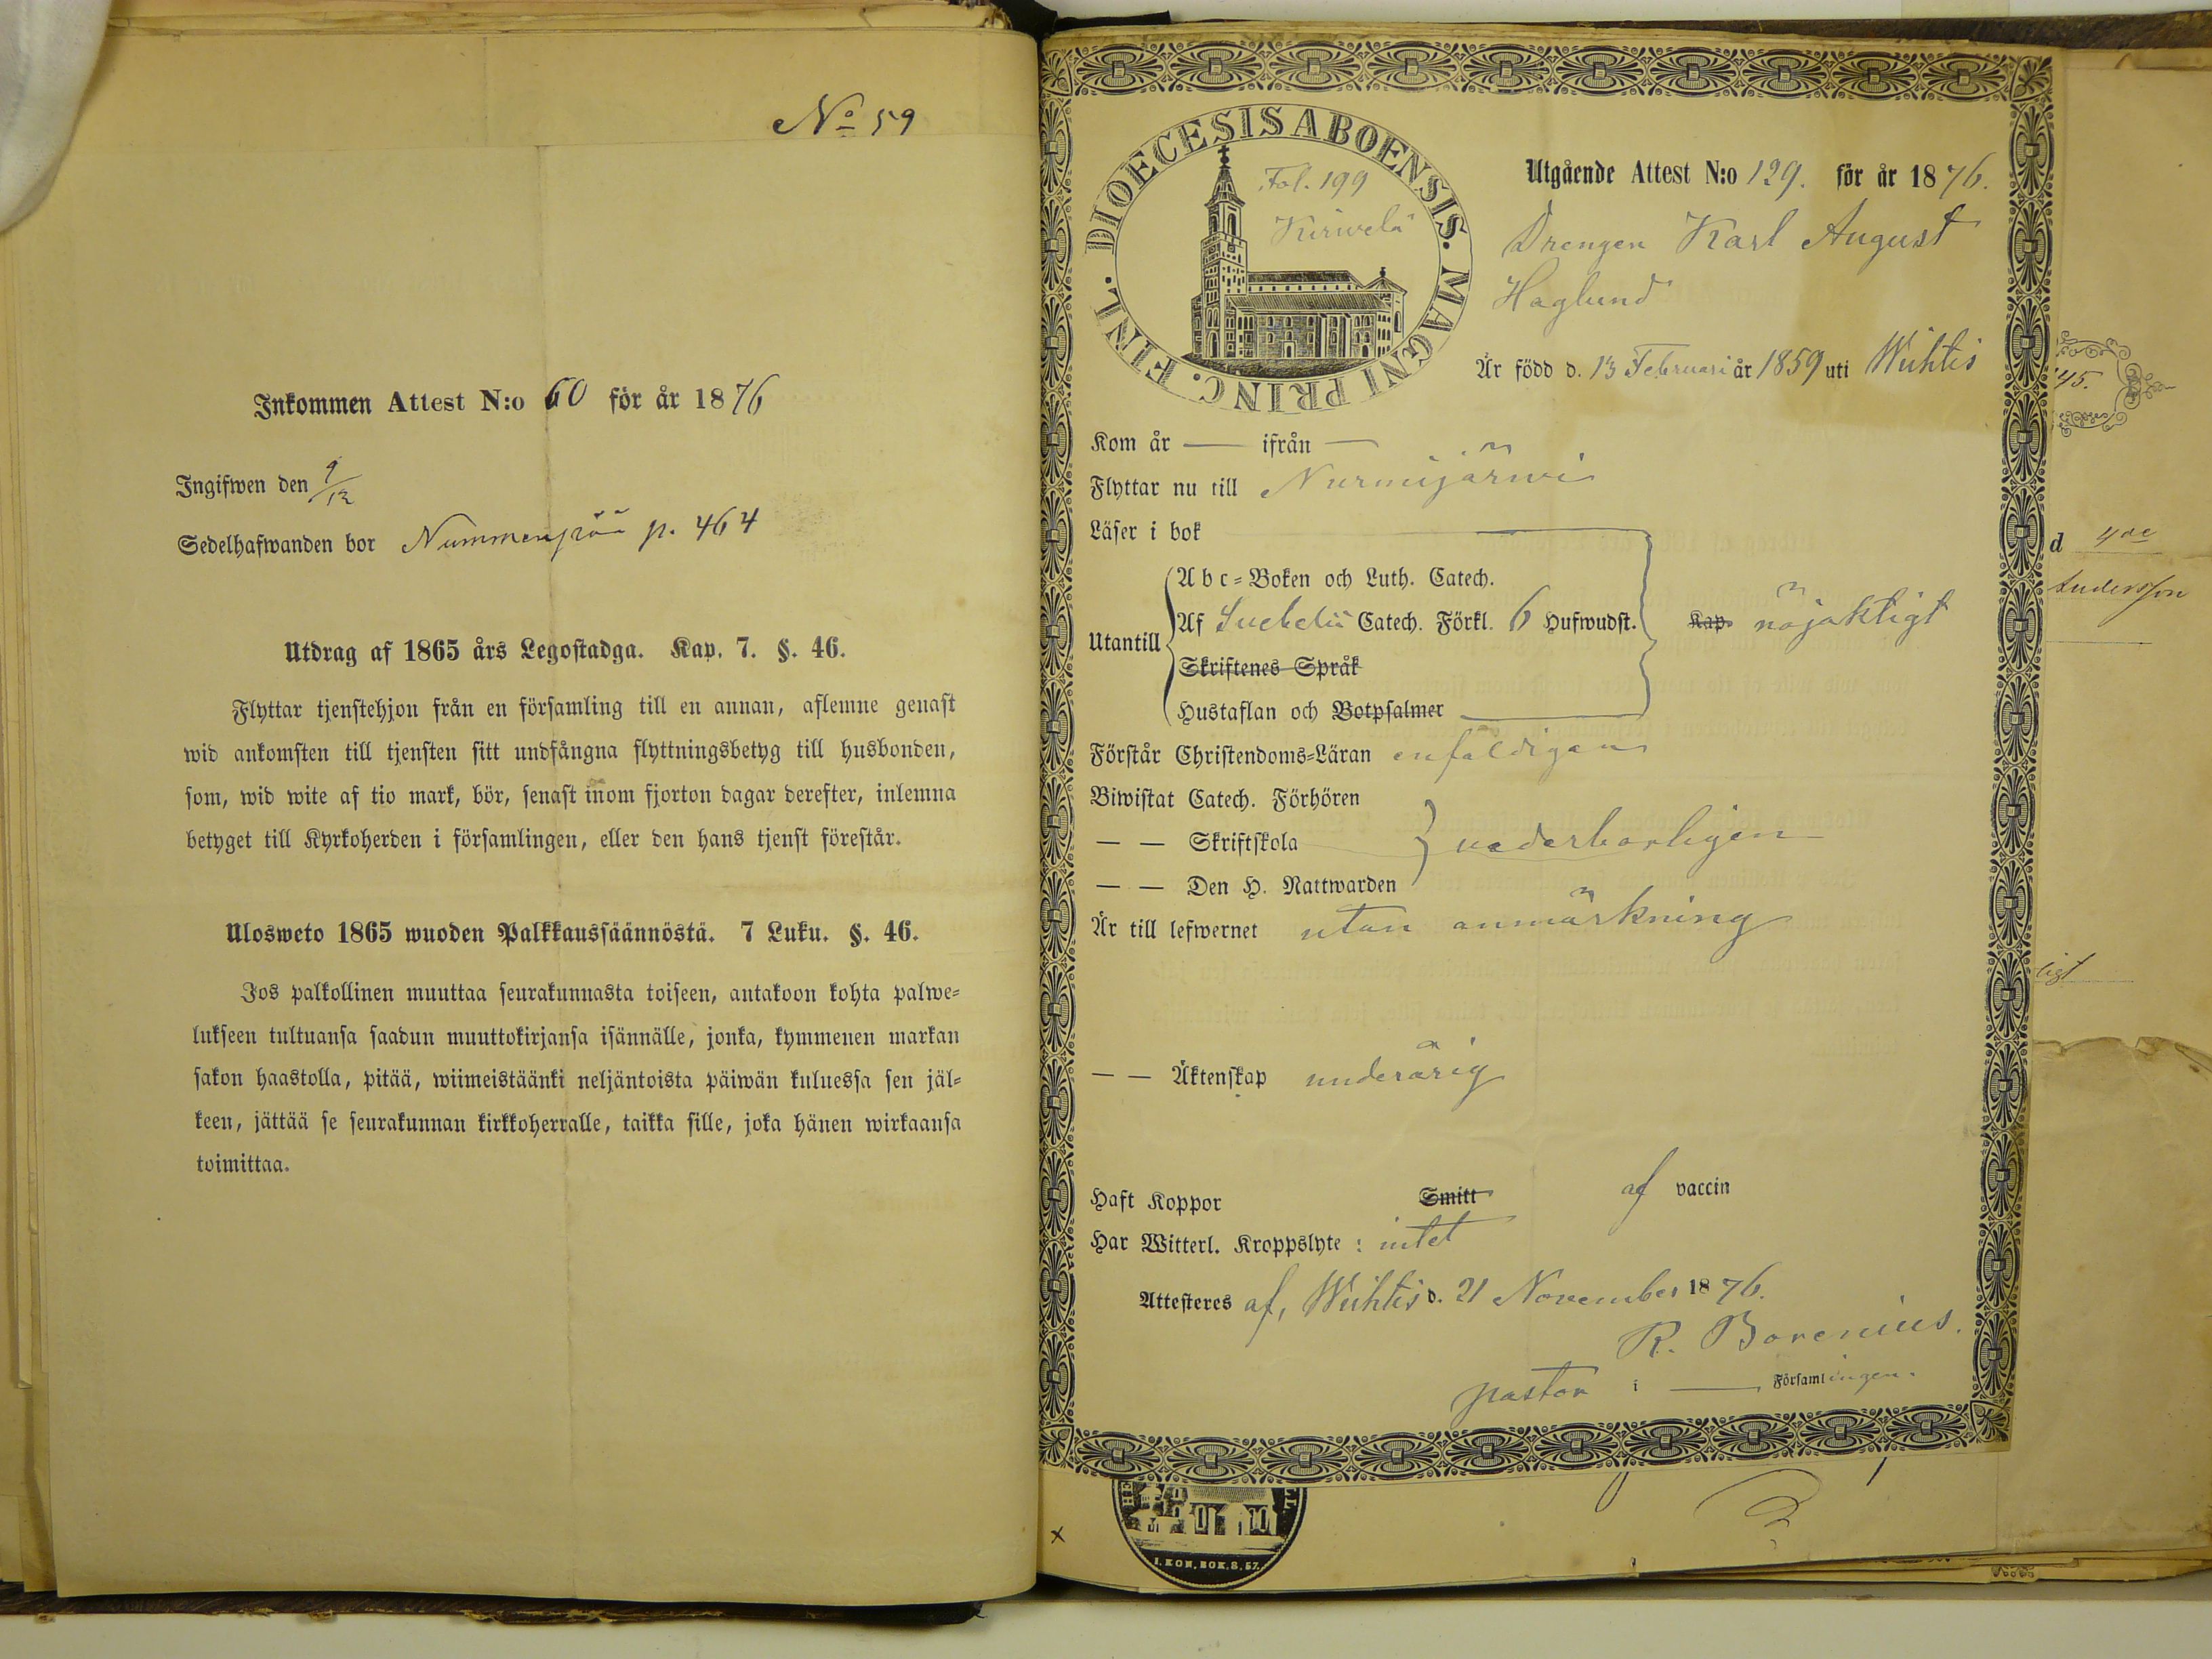 No 59
Inkommen Attest N:o 60 för år 1876
Ingifwen den 9/12
Sedelhafwanden bor Nummenpää p. 464
Utdrag af 1865 års Legostadga. Kap. 7. §. 46.
Flyttar tjenstehjon från en församling till en annan, aflemne genast
wid ankomsten till tjensten sitt undfångna flyttningsbetyg till husbonden,
som, wid wite af tio mark, bör, senast inom fjorton dagar derefter, inlemna
betyget till Kyrkoherden i församlingen, eller den hans tjenst förestår.
Ulosweto 1865 wuoden Palkkaussäännöstä. 7 Luku. §. 46.
Jos palkollinen muuttaa seurakunnasta toiseen, antakoon kohta palwe-
lukseen tultuansa saadun muuttokirjansa isännälle, jonka, kymmenen markan
sakon haastolla, pitää, wiimeistäänki neljäntoista päiwän kuluessa sen jäl-
keen, jättää se seurakunnan kirkkoherralle, taikka sille, joka hänen wirkaansa
toimittaa.
DIOECESIS ABOENSIS. MAGNI PRINC. FINL.
Fol. 199
Kirwelä
Utgående Attest N:o 129. för år 1876.
Drengen Karl August
Haglund
Är född d. 13 Februari år 1859 uti Wichtis
Kom år — ifrån —
Flyttar nu till Nurmijärwi
Läser i bok
Abc-Boken och Luth. Catech.
Utantill Af Svebelii Catech. Förkl. 6 Hufwudst. Kap. nöjaktigt
Skriftenes Språk
Hustaflan och Botpsalmer
Förstår Christendoms-Läran enfaldigan
Biwistat Catech. Förhören
— — Skriftskola vederborligen
— — Den H. Nattwarden
Är till lefwernet utan anmärkning
— — Äktenskap underårig
Haft Koppor Smitt af vaccin
Har Witterl. Kroppslyte : intet
Attesteres af, Wichtis d. 21 November 1876.
R. Borenius.
pastor i — Församlingen.
I. KON. BOK. 8. 57.
x
45.
d
Andersson
ligt